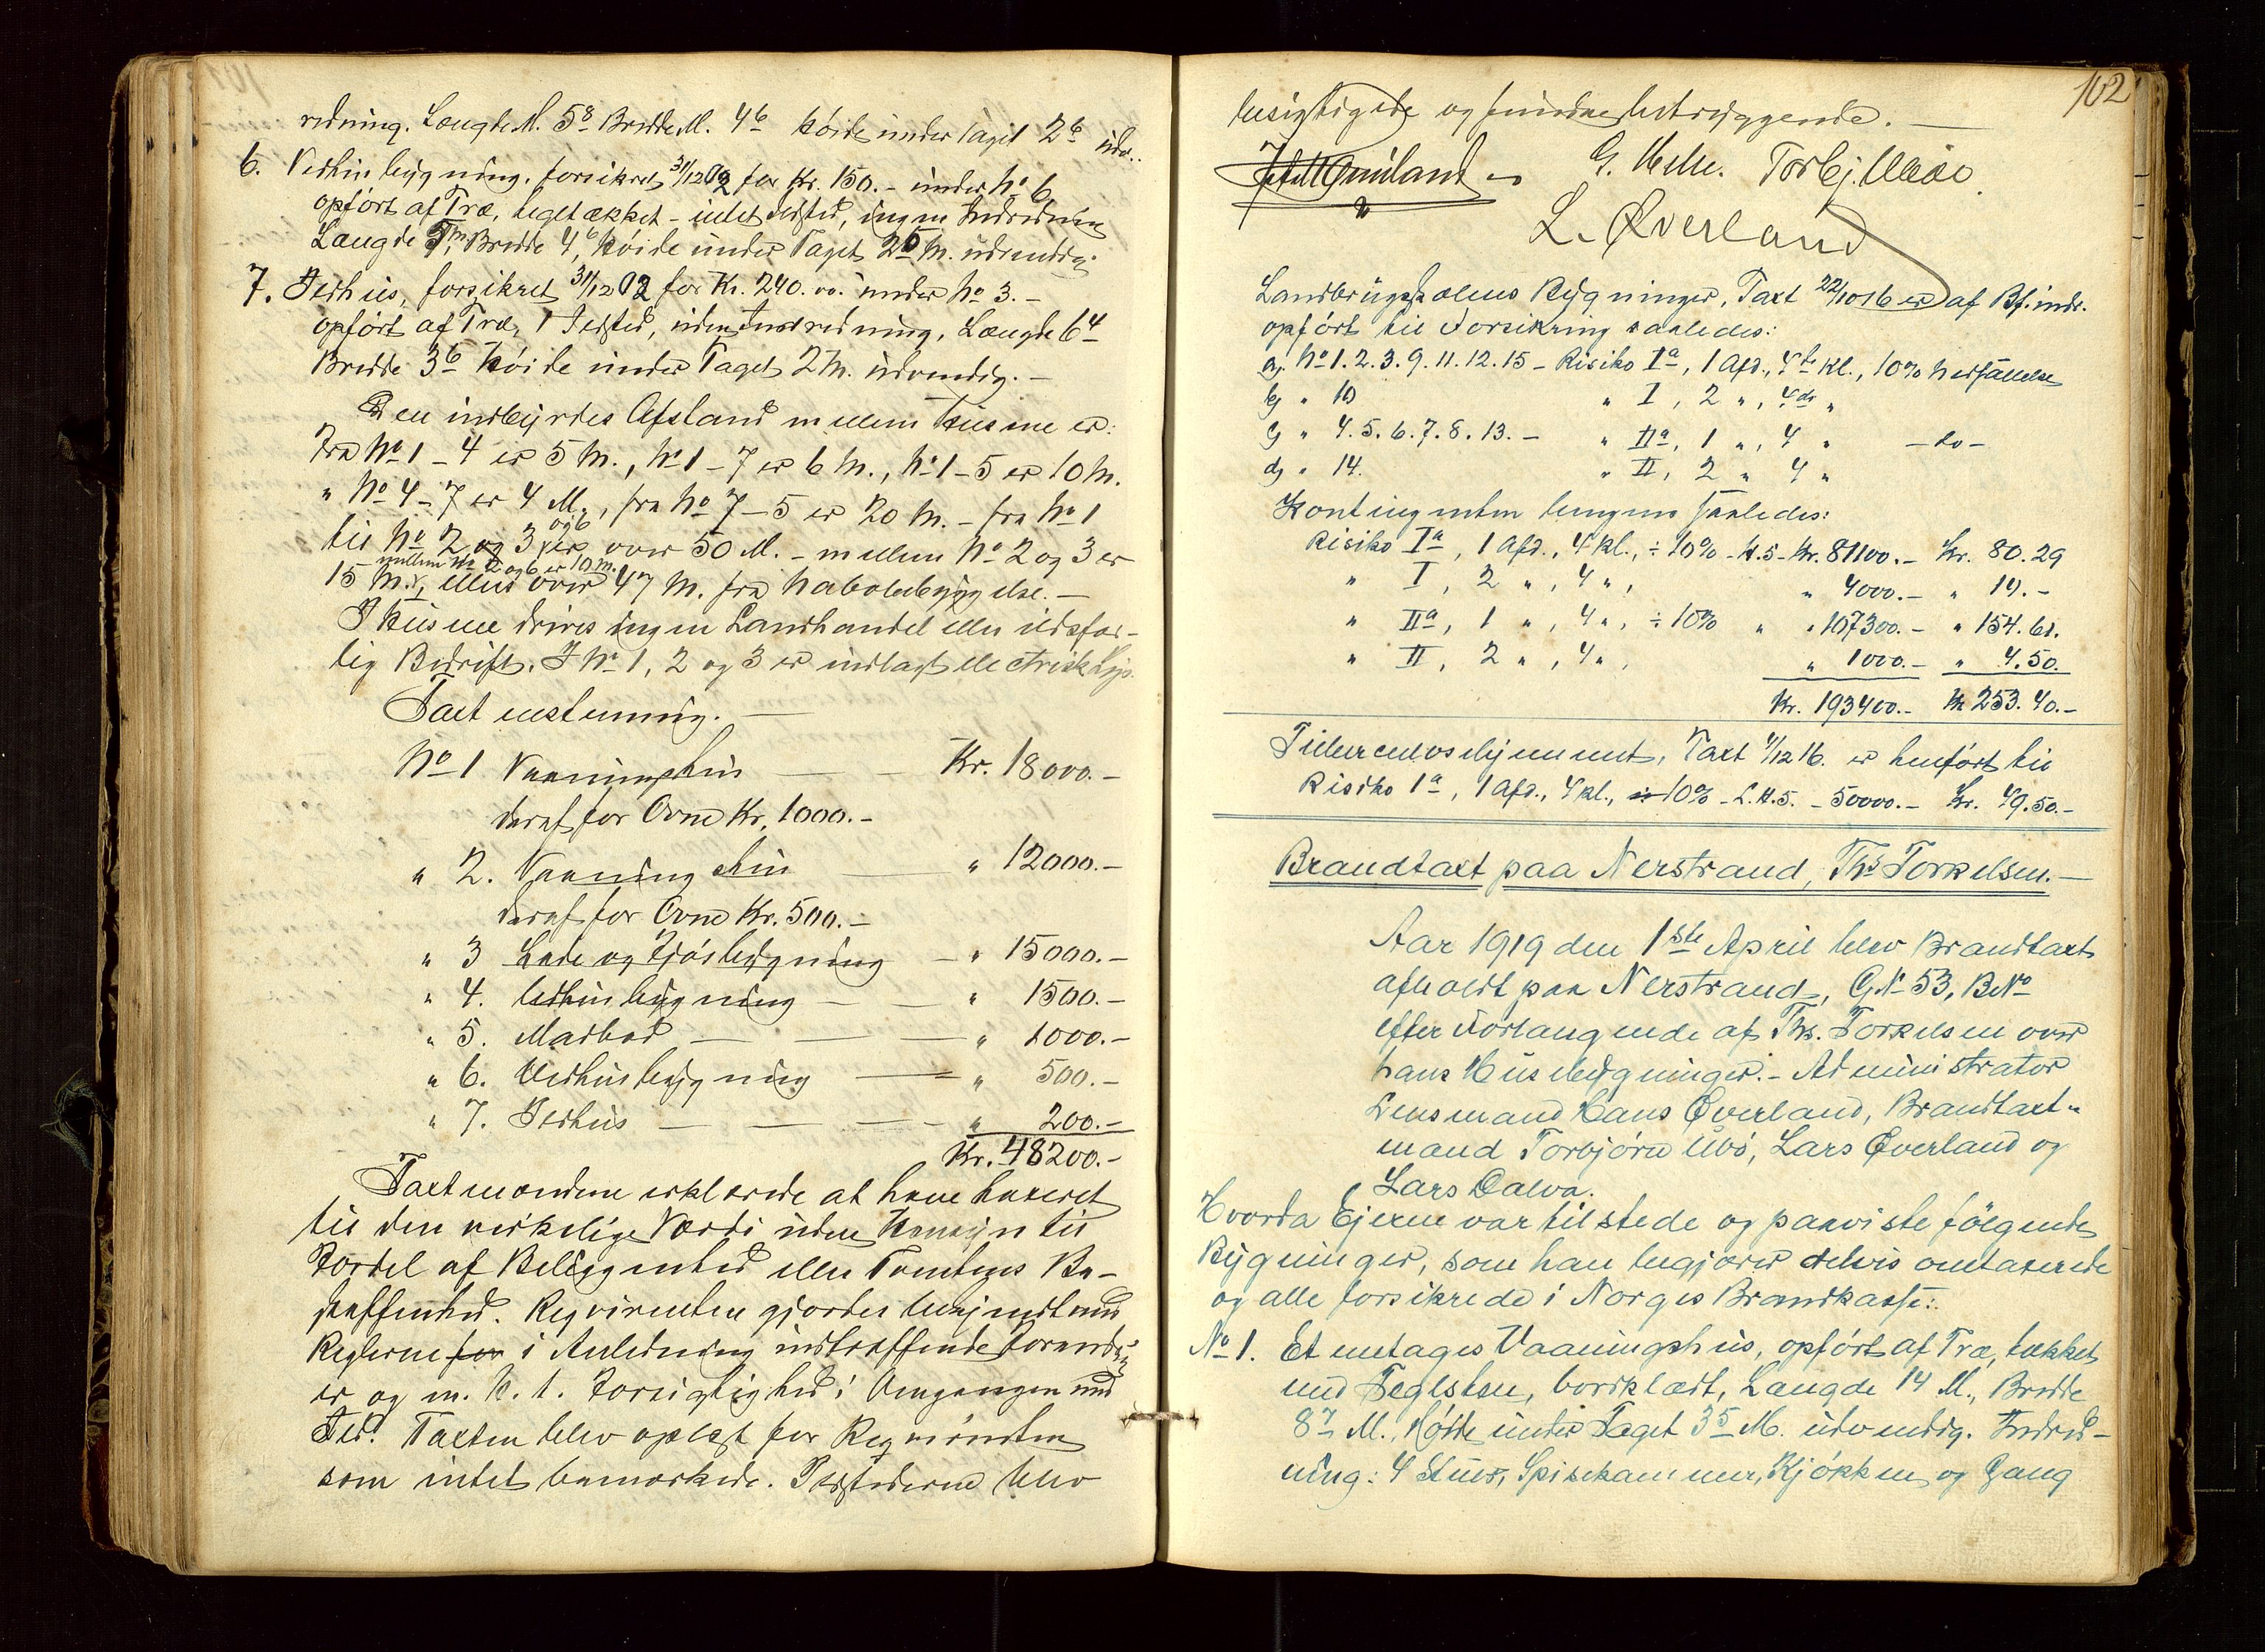 redning. Længde M. 5⁸ Bredde M. 4⁶ Höide under Taget 2⁶ udv..
6. Vedhusbygning, forsikret 31/12 02 for Kr. 150.- under No 6
opfört af Træ, teglækket - intet Ildsted, ingen Indredning
Længde 5 M, Bredde 4⁶, Höide under Taget 2⁵ M. udvendig.
7. Ildhus, forsikret 31/12 02 for Kr. 240.00. under No 3.-
opfört af Træ, 1 Ildsted, uden Indredning. Længde 6⁴
Bredde 3⁶ Höide under Taget 2 M. udvendig.-
Den indbyrdes Afstand mellem Husene er:
Fra No 1 - 4 er 5 M., No 1 - 7 er 6 M., No 1 - 5 er 10 M.
" No 4 - 7 er 4 M., fra No 7 - 5 er 20 M. - fra No 1
og 6
til No 2 og 3 er over 50 M. - mellem No 2 og 3 er
mellem No 2 og 6 er 10 M.
15 M., ellers over 47 M. fra Nabobebyggelse.-
I Husene drives ingen Landhandel eller ildsfar-
lig Bedrift. I No 1, 2 og 3 er indlagt electrisk Lys.
Taxt ansterning.
No 1 Vaaningshus - Kr. 18000.-
deraf for Ovne Kr. 1000.-
" 2. Vaaningshus " 12000.-
deraf for Ovne Kr. 500.-
" 3 Lade og Fjösbygning - " 15000.-
" 4. Vedhusbygning - " 1500.-
" 5. Madbod - " 1000.-
" 6. Vedhusbygning - " 500.-
" 7. Ildhus - " 200.-
Kr. 48200.-
Taxtmændene erklærede at have taxeret
til den virkelige Værdi uden Hensyn til
Fordel af Beliggenhed eller Tomtens Be-
skaffenhed. Reqvirenten gjordes bekjendt med
Reglerne for i Anledning indtræffende Forandring-
er og m. H. t. Forsigtighed i Omgangen med
Ild. Taxten blev oplæst for Reqvirenten
som intet bemærkede. Ildstederne blev
102
besigtigede og fundne betryggende.-
G. Helle. Torbj. Ubøe.
L. Øverland
Landbrugsskolens Bygninger, Taxt 22/10 16 er af Bf. indr.
opfört til Forsikring saaledes:
a, No 1. 2. 3. 9. 11. 12. 15 - Risiko Iª, 1 Afd., 4de Kl., 10% Nedsættelse
b, " 10 " I, 2 ", 4de "
c, " 4. 5. 6. 7. 8. 13. - " IIª, 1 ", 4 " - do -
d, " 14. " II, 2 " 4 "
Kontingenten beregnes saaledes:
Risiko Iª, 1 Afd., 4 Kl., ÷ 10% - L.5 - Kr. 81100.- Kr. 80.29
" I, 2 ", 4 ", " 4000.- " 14.-
" IIª, 1 ", 4 ", ÷ 10% " " 107300.- " 154.61.
" II, 2 ", 4 ", " 1000.- " 4.50.
Kr. 193400.- Kr 253.40.-
Tuberculosehjemmet, Taxt 4/12 16. er henfört til
Risiko 1ª, 1 Afd., 4 kl., ÷ 10% - L.5. - 50000.- Kr. 49.50.-
Brandtaxt paa Nerstrand, Ths Torkelsen.-
Aar 1919 den 1ste April blev Brandtaxt
afholdt paa Nerstrand, GNo 53, BNo
efter Forlangende af Ths. Torkelsen over
hans Husebygninger.- Administrator
Lensmand Hans Øverland, Brandtaxt-
mænd Torbjörn Ubö, Lars Øverland og
Lars Dalva.
Hvorda Ejeren var tilstede og paaviste fölgende
Bygninger, som han begjærer delvis omtaxerede
og alle forsikrede i Norges Brandkasse:
No 1. Et enetages Vaaningshus, opfört af Træ, tækket
med Teglsten, bordklædt, Længde 14 M., Bredde
8⁷ M., Höide under Taget 3⁵ M. udvendig. Indred-
ning: 4 Stuer, Spisekammer, Kjökken og Gang